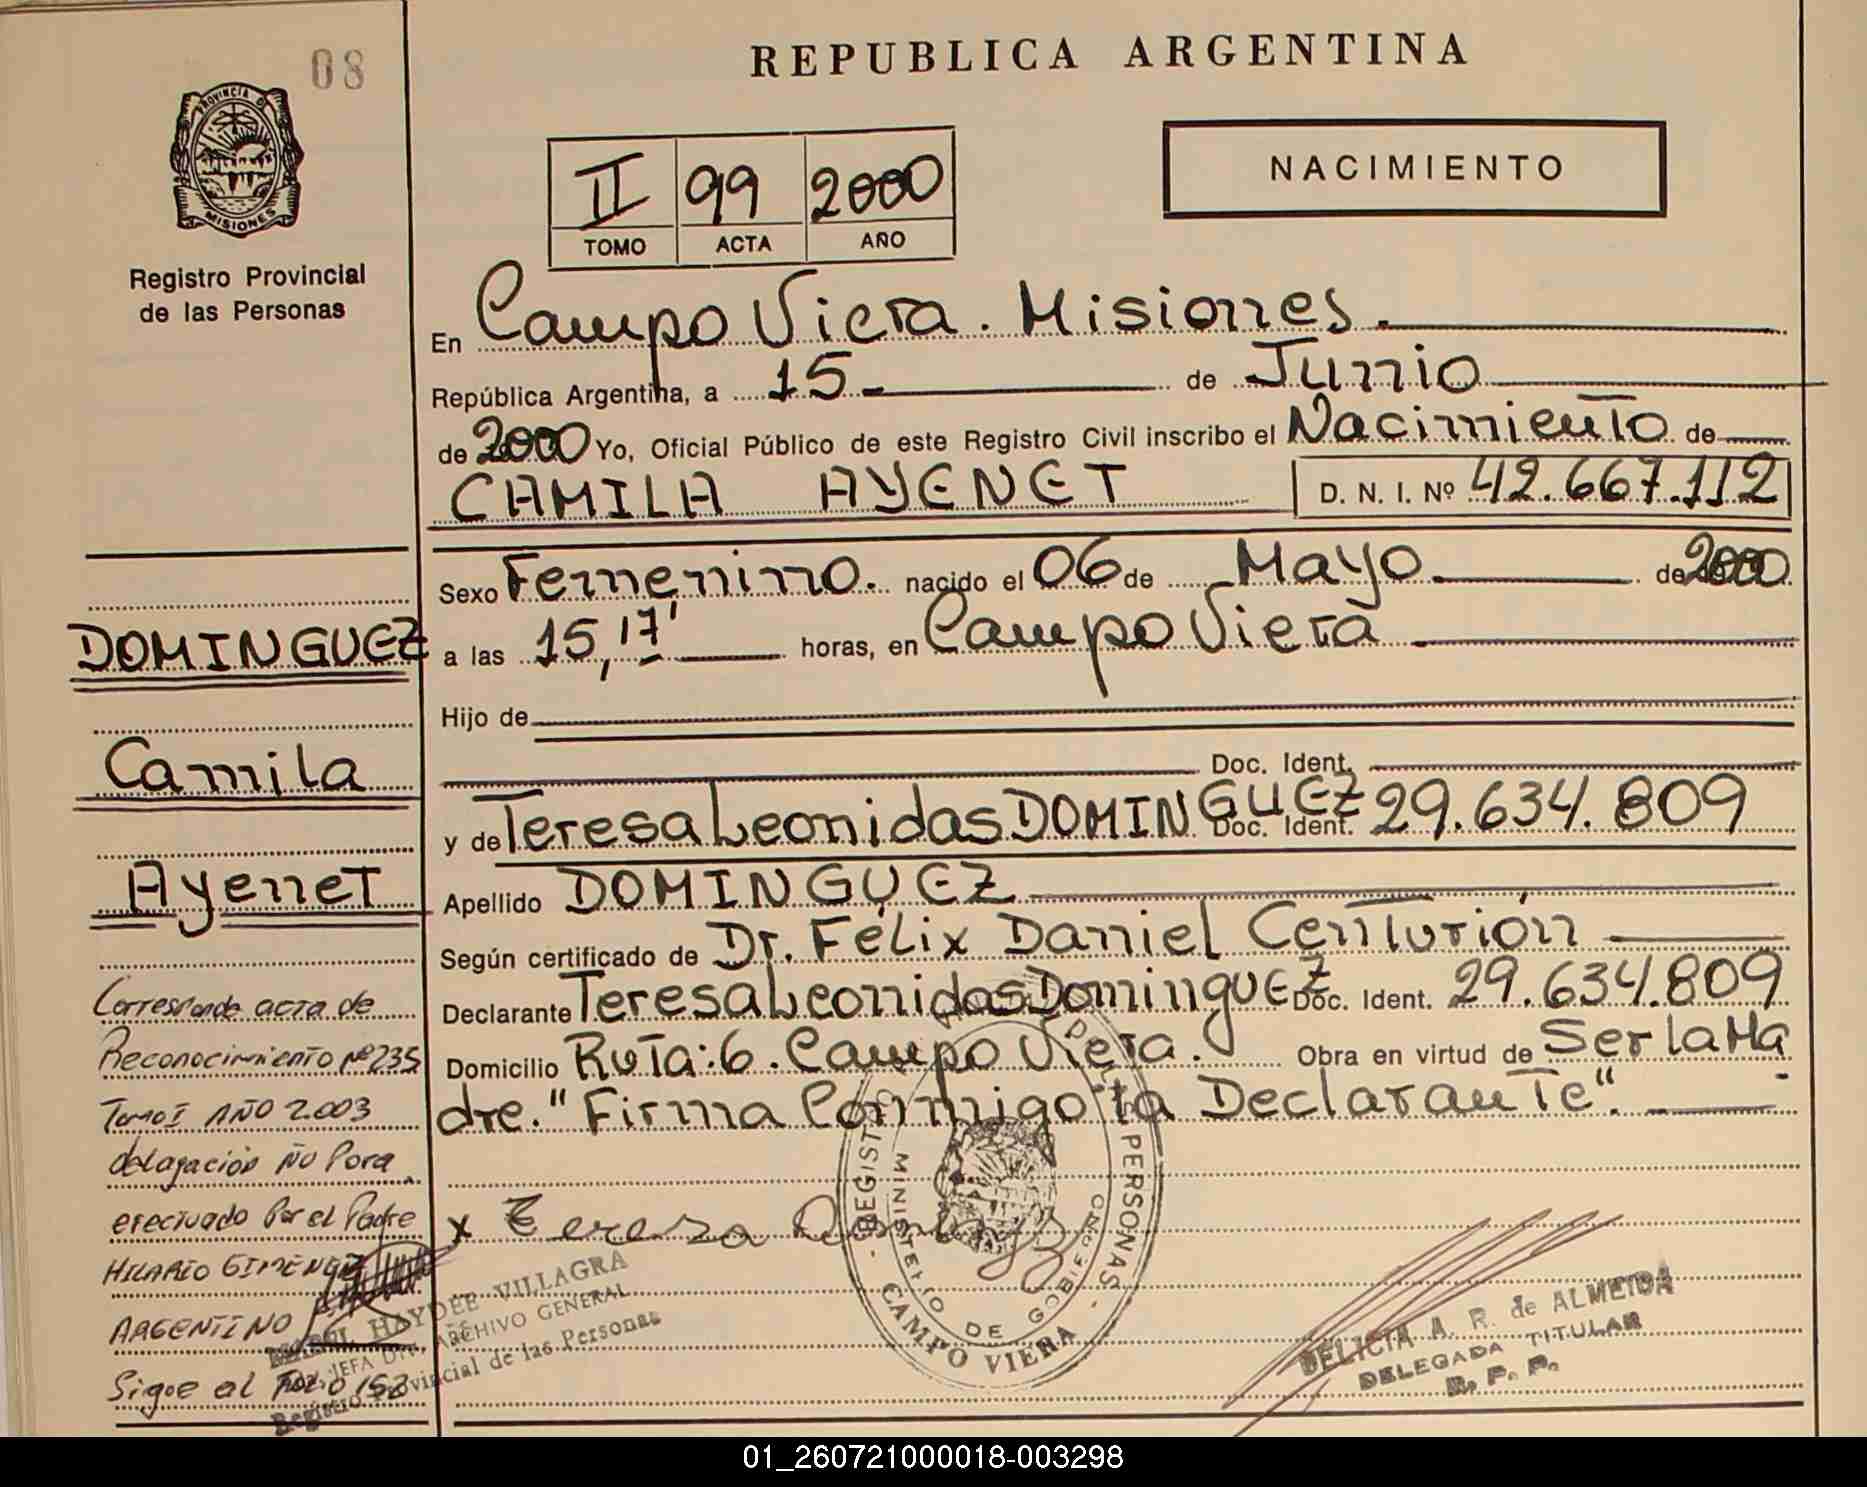 08
PROVINCIA DE
MISIONES
Registro Provincial
de las Personas
REPUBLICA ARGENTINA
II 99 2000
TOMO ACTA AÑO
NACIMIENTO
En Campo Viera. Misiones.
República Argentina, a 15 de Junio
de 2000 Yo, Oficial Público de este Registro Civil inscribo el Nacimiento de
CAMILA AYENET D. N. I. Nº 42.667.112
Sexo Femenino. nacido el 06 de Mayo de 2000
a las 15,17' horas, en Campo Viera
Hijo de
Doc. Ident.
y de Teresa Leonidas DOMINGUEZ Doc. Ident. 29.634.809
Apellido DOMINGUEZ
Según certificado de Dr. Félix Daniel Centurión
Declarante Teresa Leonidas DominguEZ Doc. Ident. 29.634.809
Domicilio Ruta: 6. Campo Viera. Obra en virtud de Ser la Ma
dre. "Firma Conmigo la Declarante".
x Teresa
REGISTRO PERSONAS
MINISTERIO DE GOBIERNO
CAMPO VIERA
DELICIA A. R. de ALMEIDA
DELEGADA TITULAR
R. P. P.
DOMINGUEZ
Camila
Ayenet
Corresponde acta de
Reconocimiento Nº 235
Tomo I AÑO 2.003
delagación Ñu Pora
efectuado Por el Padre
HILARIO GIMENEZ
ARGENTINO
Sigue al Folio 152
HAYDEE VILLAGRA
JEFA DTO. ARCHIVO GENERAL
Registro Provincial de las Personas
01_260721000018-003298